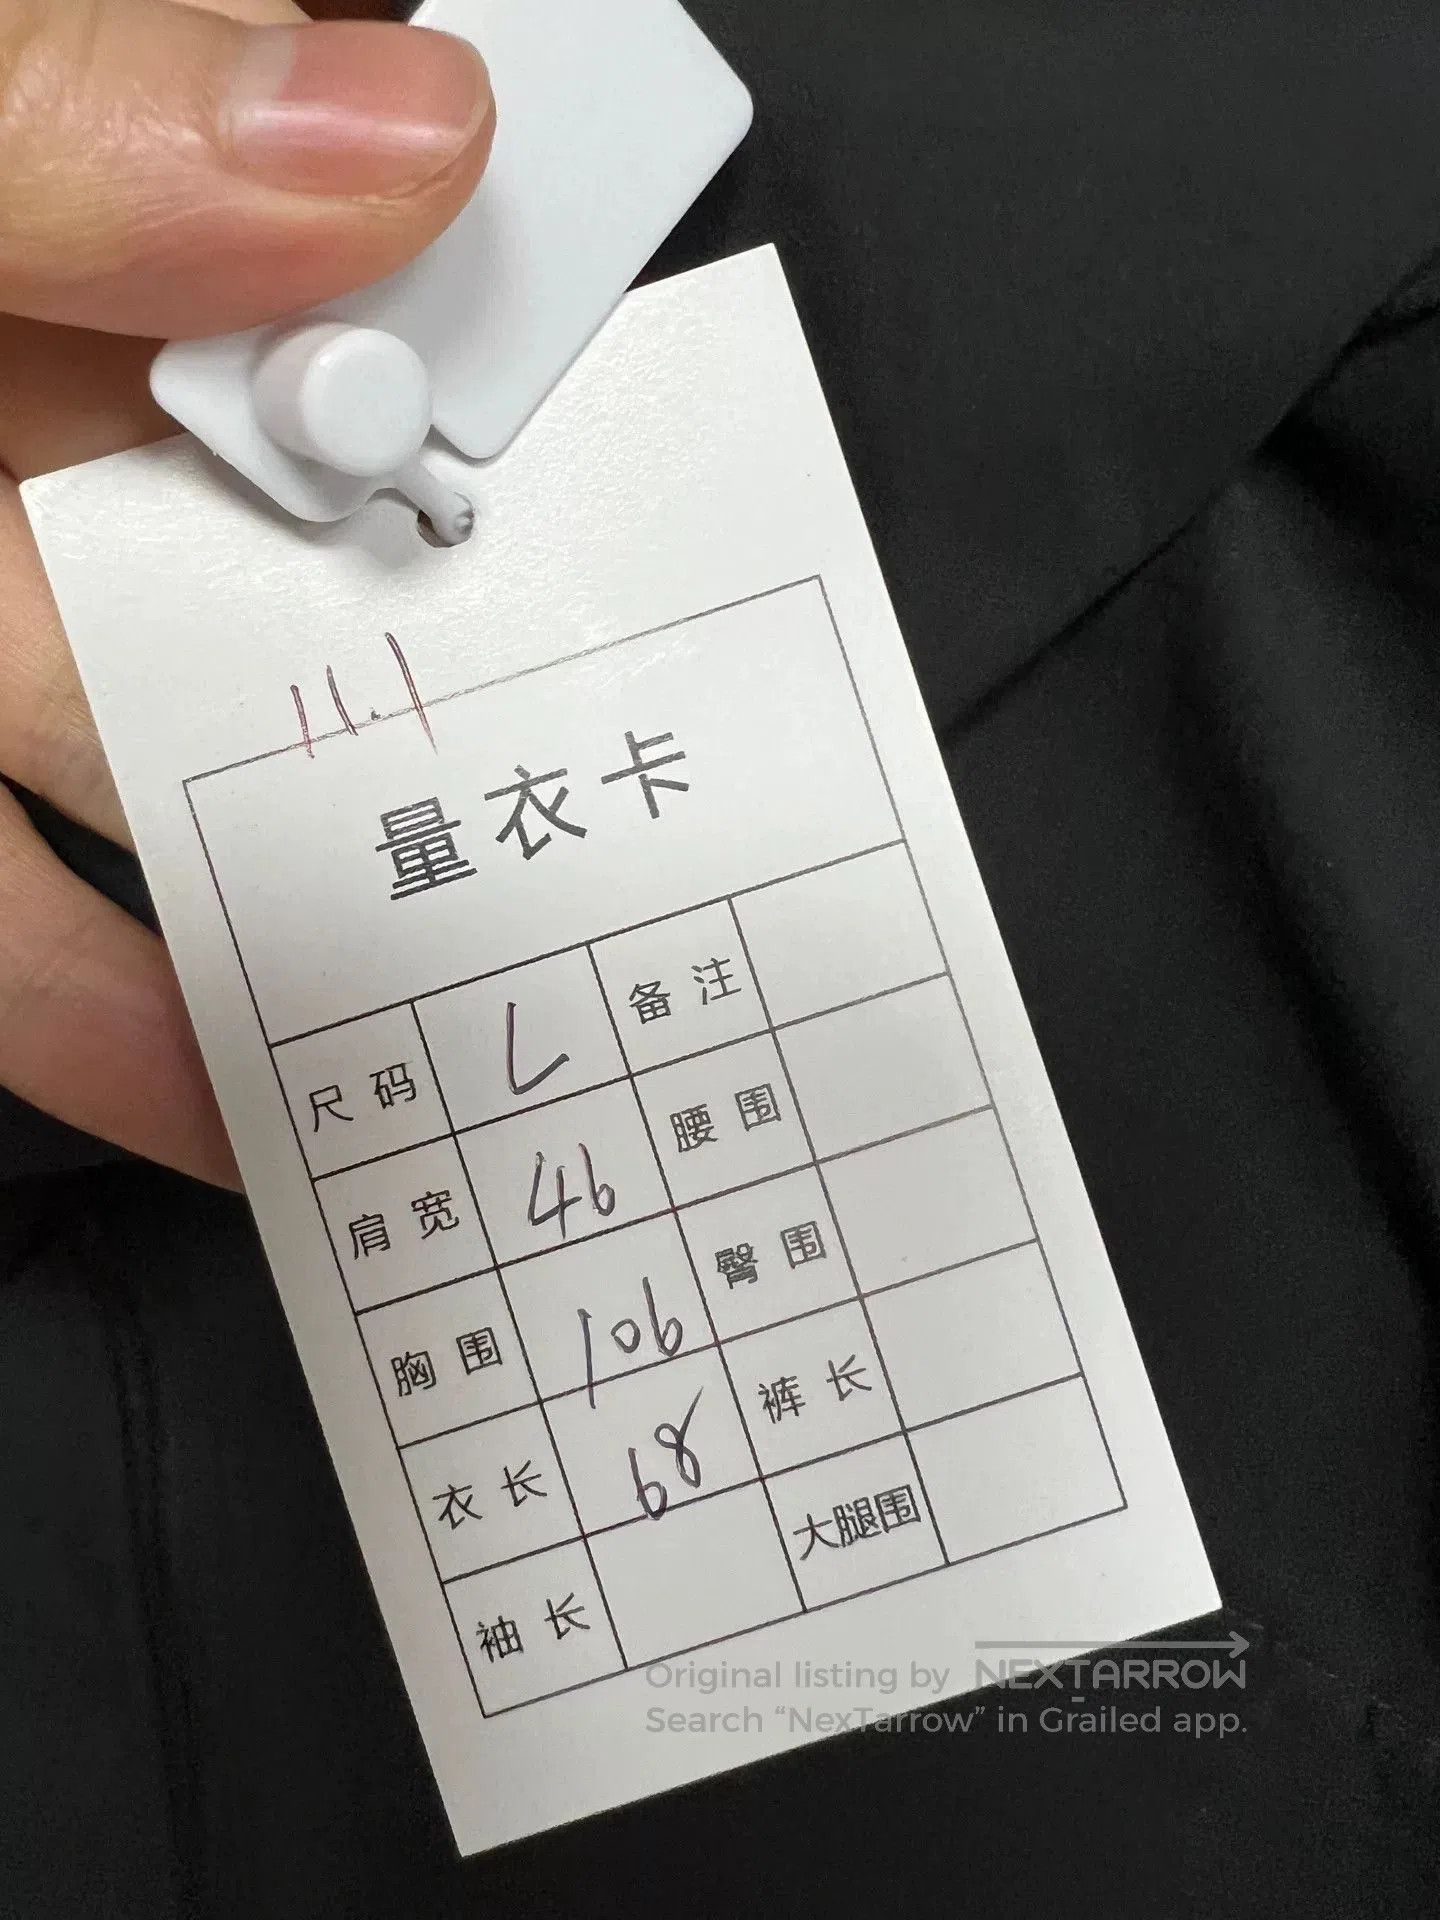 11.1
量衣卡
尺码 L 备注
肩宽 46 腰围
胸围 106 臀围
衣长 68 裤长
袖长 大腿围
Original listing by NEXTARROW
Search “NexTarrow” in Grailed app.